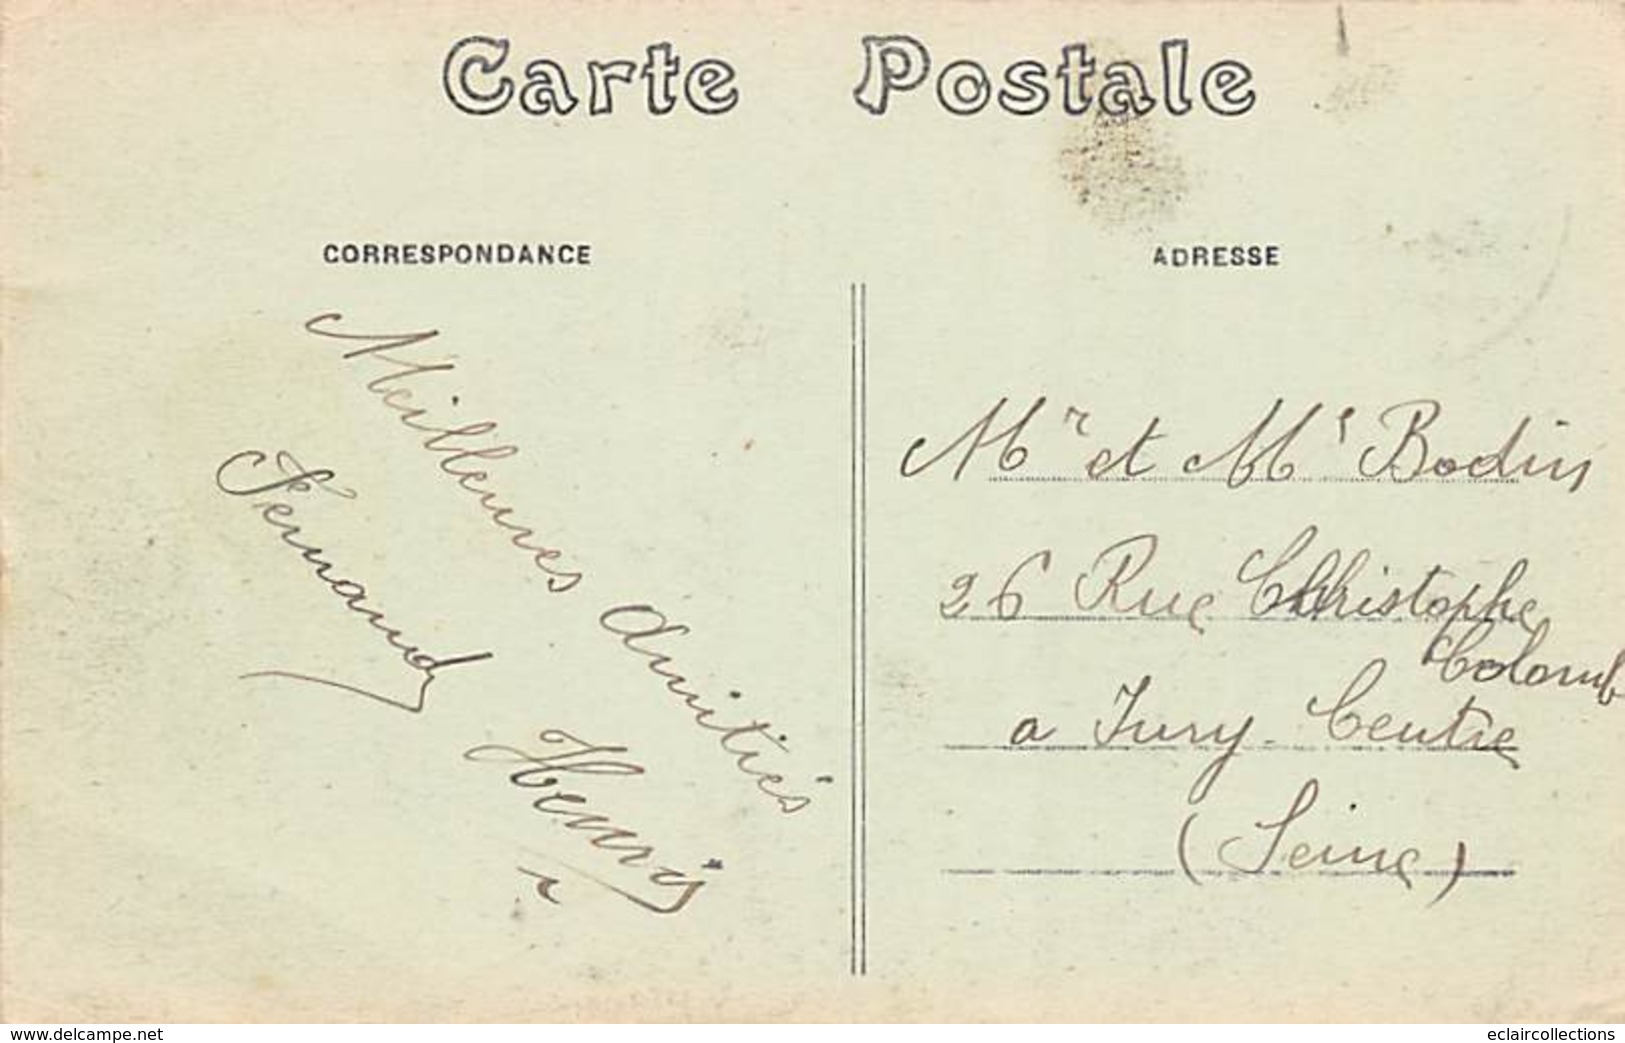 Carte Postale
CORRESPONDANCE
Meilleures Amitiés
Fernand
Henri
ADRESSE
Mr et Me Bodin
26 Rue Christophe
Colomb
a Ivry. Centre
(Seine)
www.delcampe.net
eclaircollections